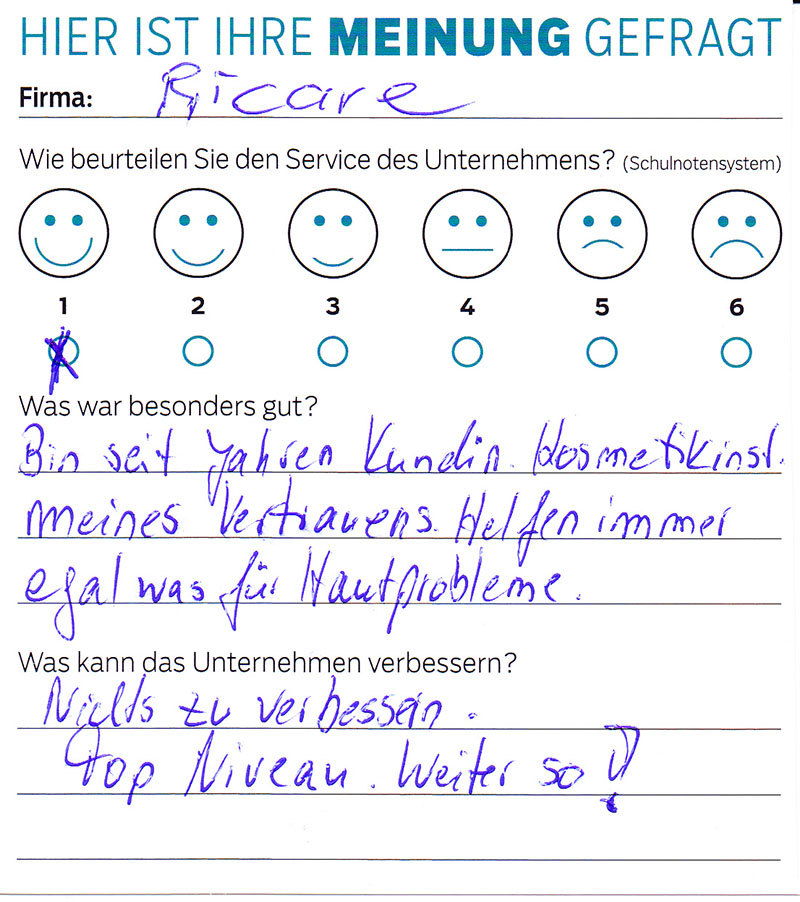 HIER IST IHRE MEINUNG GEFRAGT
Firma: Ricare
Wie beurteilen Sie den Service des Unternehmens? (Schulnotensystem)
1 2 3 4 5 6
Was war besonders gut?
Bin seit Jahren Kundin. Kosmetikinst.
meines Vertrauens. Helfen immer
egal was für Hautprobleme.
Was kann das Unternehmen verbessern?
Nichts zu verbessern.
Top Niveau. Weiter so!